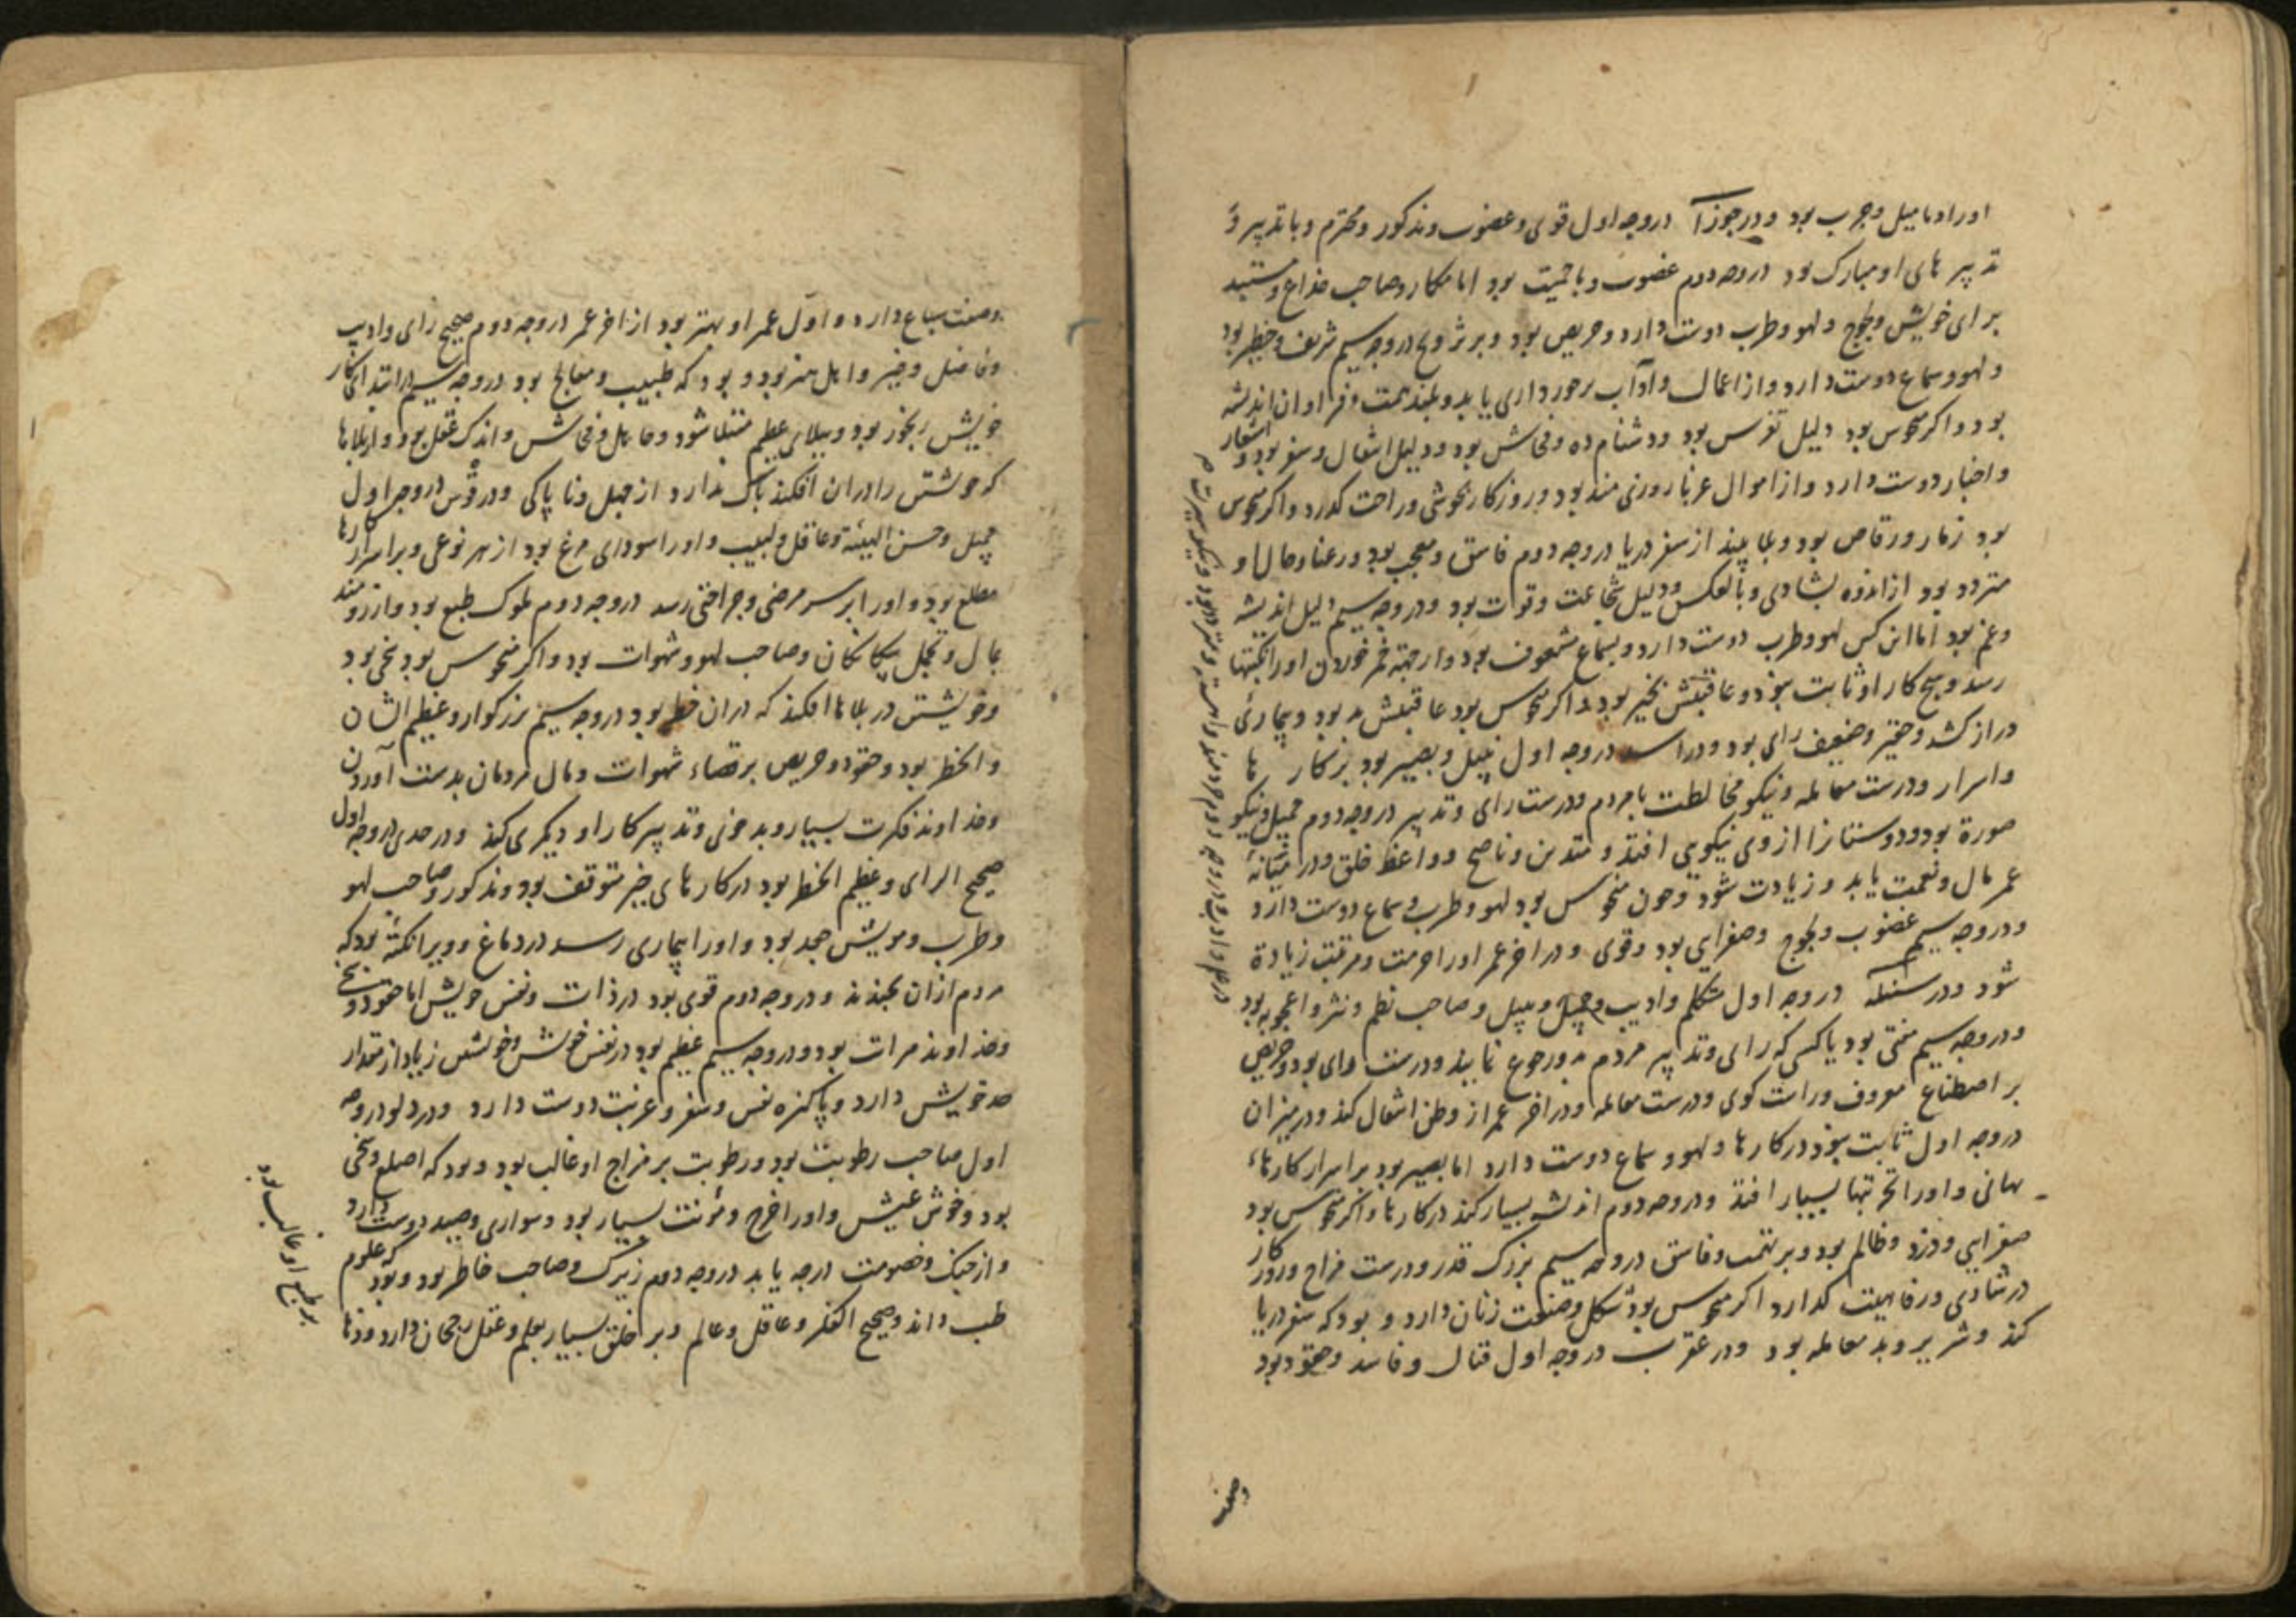 اورا دمامیل و جرب بود و در جوزا در وجه اول قوی و غضوب و مذکور و محترم و با تدبیر و
تدبیر های او مبارک بود در وجه دوم غضوب و با حمیت بود اما مکار و صاحب خداع و مستبد
برای خویش و لجوج و لهو و طرب دوست دارد و حریص بود و بر تزویج در وجه سیم شریف و خطیر بود
و لهو و سماع دوست دارد و از اعمال و آداب برخورداری یابد و بلند همت و فراوان اندیشه
بود و اکر منحوس بود دلیل تفرس بود و دشنام ده و فحاش بود و دلیل انتقال و سفر بود و اشعار
و اخبار دوست دارد و از اموال غربا روزی مند بود و روزکار بخوشی و راحت کدرد و اکر منحوس
بود زمار و رقاص بود و بلا بیند از سفر دریا در وجه دوم فاسق و معجب بود و رعنا و حال او
متردد بود از اندوه بشادی و بالعکس و دلیل شجاعت و قوات بود و در وجه سیم دلیل اندیشه
و غم بود اما این کس لهو و طرب دوست دارد و بسماع مشعوف بود و از جهته خمر خوردن اورا نکبتها
رسد و هیچ کار او ثابت نبود و عاقبتش بخیر بود و اکر منحوس بود عاقبتش بد بود و بیماری
دراز کشد و حقیر و ضعیف رای بود و در اسد در وجه اول نبیل و بصیر بود بر کار ها
و اسرار و درست معامله و نیکو مخالطت با مردم و درست رای و تدبیر در وجه دوم جمیل و نیکو
صورة بود و دوستانرا از وی نیکویی افتد و متدین و ناصح و واعظ خلق و در میانهٔ
عمر مال و نعمت یابد و زیادت شود و چون منحوس بود لهو و طرب و سماع دوست دارد
و در وجه سیم غضوب و لجوج و صفرایی بود و قوی و در اخر عمر اورا حرمت و مرتبت زیادة
شود و در سنبله در وجه اول متکلم و ادیب و جمیل و نبیل و صاحب نظم و نثر و اعجوبه بود
و در وجه سیم مفتی بود یا کسی که رای و تدبیر مردم بدو رجوع نمایند و درست رای بود و حریص
بر اصطناع معروف و راست کوی و درست معامله و در اخر عمر از وطن انتقال کند و در میزان
در وجه اول ثابت بود در کارها و لهو و سماع دوست دارد اما بصیر بود بر اسرار کارهاء
نهانی و اورا تجربتها بسیار افتد و در وجه دوم اندیشه بسیار کند در کارها و اکر منحوس بود
صفرایی و دزد و ظالم بود و بر تهمت و فاسق در وجه سیم بزرک قدر و درست مزاج و روزکار
در شادی و رفاهیت کدارد اکر منحوس بود شکل و صنعت زنان دارد و بود که سفر دریا
کند و شریر و بد معامله بود و در عقرب در وجه اول قتال و فاسد و حقود بود
و صفت سباع دارد و اول عمر او بهتر بود از اخر عمر در وجه دوم صحیح رای و ادیب
و فاضل و خیر و اهل هنر بود و بود که طبیب و معالج بود در وجه سیم در ابتدای کار
خویش رنجور بود و ببلای عظیم مبتلا شود و جاهل و فحاش و اندک عقل بود و از بلاها
که خویشتن را در آن افکند باک ندارد از جهل و ناپاکی و در قوس در وجه اول
جمیل و حسن الهیئة و عاقل و لبیب و اورا سودای مرغ بود از هر نوعی و بر اسرار کارها
مطلع بود و اورا بر سر مرضی و جراحتی رسد در وجه دوم ملوک طبع بود و آرزومند
بمال و تجمل بیکانکان و صاحب لهو و شهوات بود و اکر منحوس بود سخی بود
و خویشتن در بلاها افکند که در ان خطر بود در وجه سیم بزرکوار و عظیم الشان
و الخطر بود و حقود و حریص بر قضاء شهوات و مال مردمان بدست آوردن
و خداوند فکرت بسیار و بد خوی و تدبیر کار او دیکری کند و در جدی در وجه اول
صحیح الرای و عظیم الخطر بود در کارهای خیر متوقف بود و مذکور و صاحب لهو
و طرب و مویش جعد بود و اورا بیماری رسد در دماغ و ویرا نکته بود که
مردم ازان بخندند و در وجه دوم قوی بود در ذات و نفس خویش اما حقود و
و خداوند مرات بود و در وجه سیم عظیم بود در نفس خویش و خویشتن زیاد از مقدار
حد خویش دارد و پاکیزه نفس و سفر و غربت دوست دارد و در دلو در وجه
اول صاحب رطوبت بود و رطوبت بر مزاج او غالب بود و بود که اصلع و سخی
بود و خوش عیش و اورا خرج و مؤنت بسیار بود و سواری و صید دوست دارد
و از جنک و خصومت درجه یابد در وجه دوم زیرک و صاحب خاطر بود و بود که علوم
طب داند و صحیح الفکر و عاقل و عالم و بر خلق بسیار بعلم و عقل رجحان دارد و
بر طبع او غالب بود
وصفت